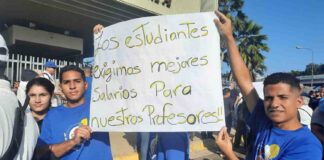 Los estudiantes
exigimos mejores
Salarios Para
nuestros Profesores!!